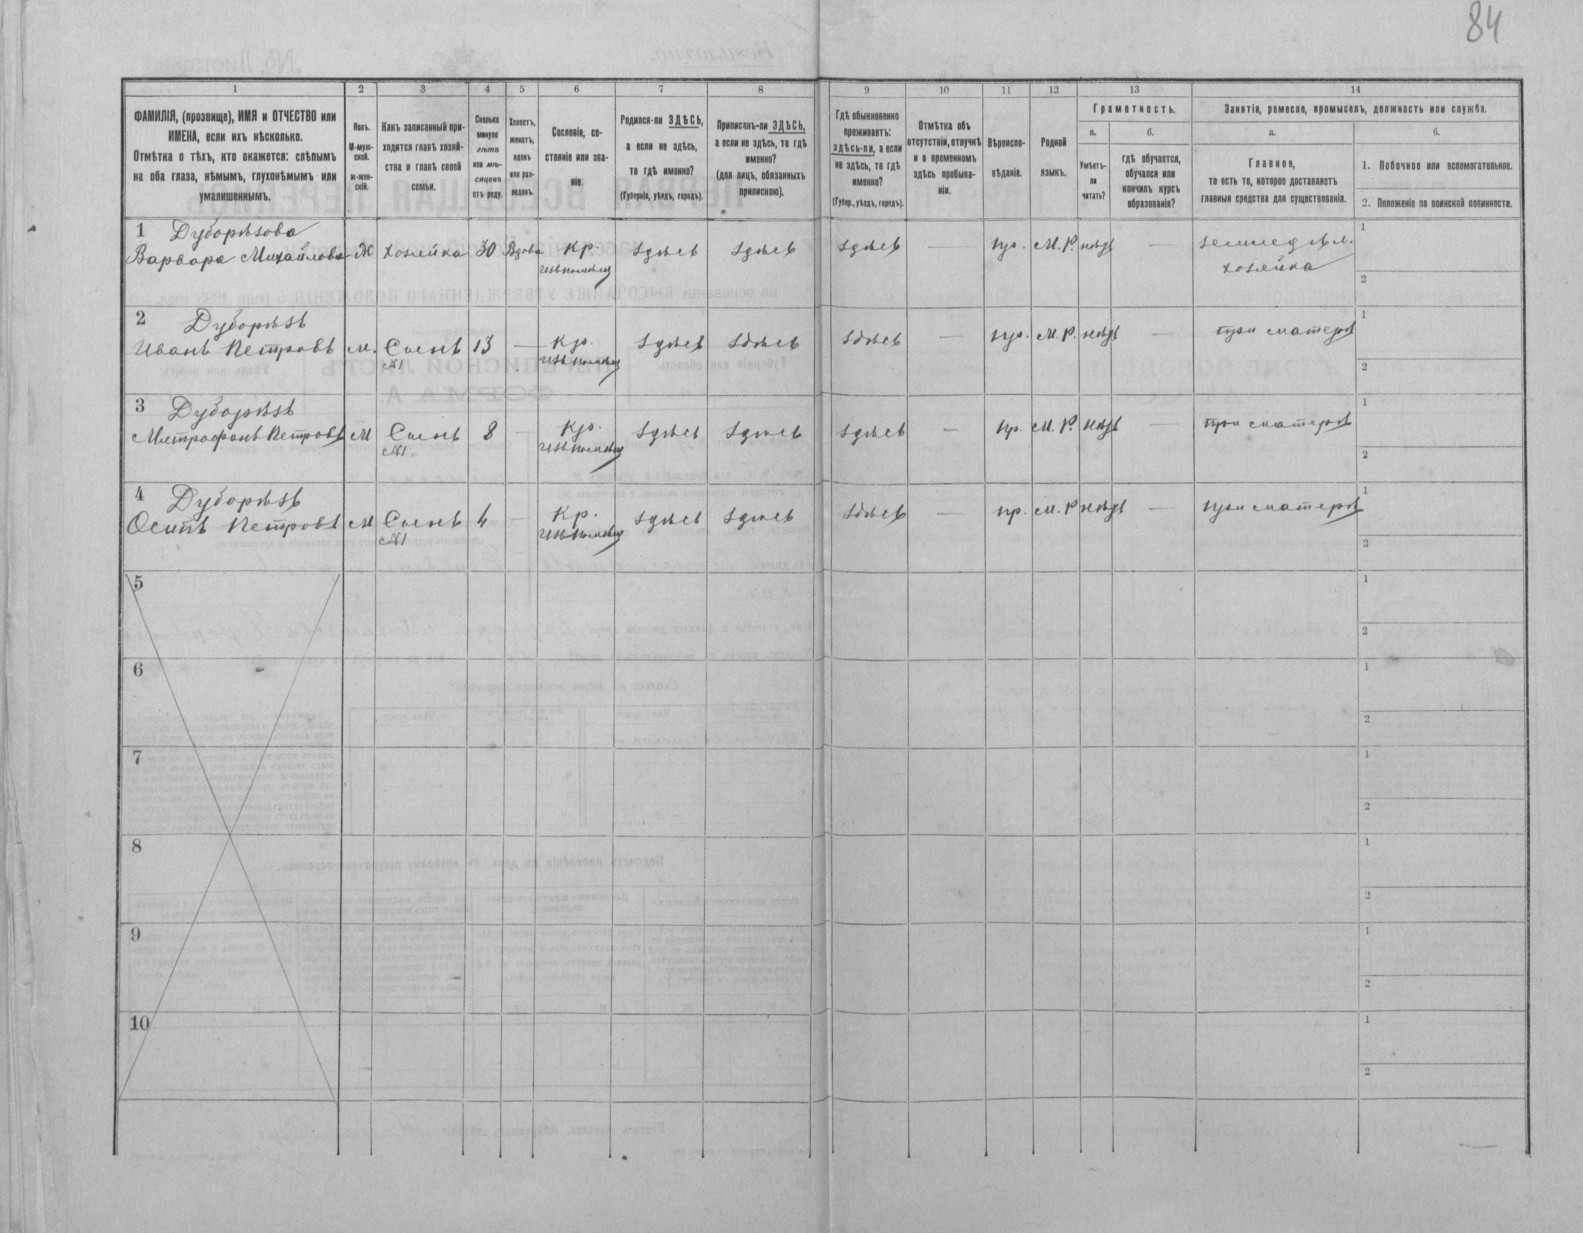 84
1
2
3
4
5
6
7
8
9
10
11
12
13
14
ФАМИЛІЯ, (прозвище), ИМЯ и ОТЧЕСТВО или
ИМЕНА, если ихъ нѣсколько.
Отмѣтка о тѣхъ, кто окажется: слѣпымъ
на оба глаза, нѣмымъ, глухонѣмымъ или
умалишеннымъ.
Полъ.
М-муж-
ской.
ж-жен-
скій.
Какъ записанный при-
ходится главѣ хозяй-
ства и главѣ своей
семьи.
Сколько
минуло
лѣтъ
или мѣ-
сяцевъ
отъ роду.
Холостъ,
женатъ,
вдовъ
или раз-
веденъ.
Сословіе, со-
стояніе или зва-
ніе.
Родился-ли ЗДѢСЬ,
а если не здѣсь,
то гдѣ именно?
(Губернія, уѣздъ, городъ).
Приписанъ-ли ЗДѢСЬ,
а если не здѣсь, то гдѣ
именно?
(для лицъ, обязанныхъ
припискою).
Гдѣ обыкновенно
проживаетъ:
здѣсь-ли, а если
не здѣсь, то гдѣ
именно?
(Губер., уѣздъ, городъ).
Отмѣтка объ
отсутствіи, отлучкѣ
и о временномъ
здѣсь пребыва-
ніи.
Вѣроиспо-
вѣданіе.
Родной
языкъ.
Грамотность.
а.
Умѣетъ-
ли
читать?
б.
гдѣ обучается,
обучался или
кончилъ курсъ
образованія?
Занятіе, ремесло, промыселъ, должность или служба.
а.
Главное,
то есть то, которое доставляетъ
главныя средства для существованія.
б.
1. Побочное или вспомогательное.
2. Положеніе по воинской повинности.
1 Дуборѣзова
Варвара Михайлова Ж Хозяйка 30 Вдова Кр. здѣсь здѣсь здѣсь — пр. М.Р. нѣтъ — земледѣл. 1
хозяйка
2
2 Дуборѣзъ
Иванъ Петровъ М. Сынъ 13 — Кр. здѣсь здѣсь здѣсь — пр. М.Р. нѣтъ — при матери 1
№1
2
3 Дуборѣзъ
Митрофанъ Петровъ М Сынъ 8 — Кр. здѣсь здѣсь здѣсь — пр. М.Р. нѣтъ — при матери 1
№1
2
4 Дуборѣзъ
Осипъ Петровъ М Сынъ 4 — Кр. здѣсь здѣсь здѣсь — пр. М.Р нѣтъ — при матери 1
№1
2
5 1
2
6 1
2
7 1
2
8 1
2
9 1
2
10 1
2